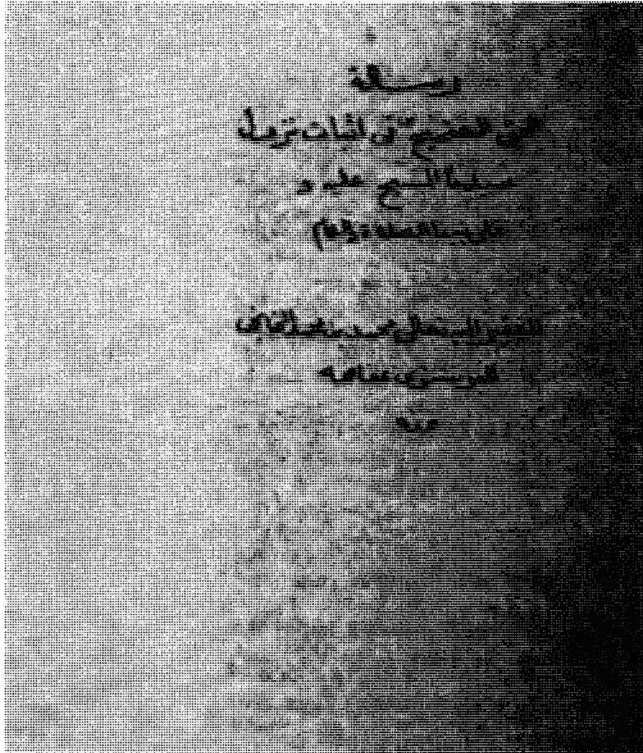 رسالة
الحق الصحيح في اثبات نزول
سيدنا المسيح عليه و
على نبينا الصلاة والسلام
الفقير اليه تعالى محمد بن محمد الخانجى
البوسنوى عفا الله
عنه